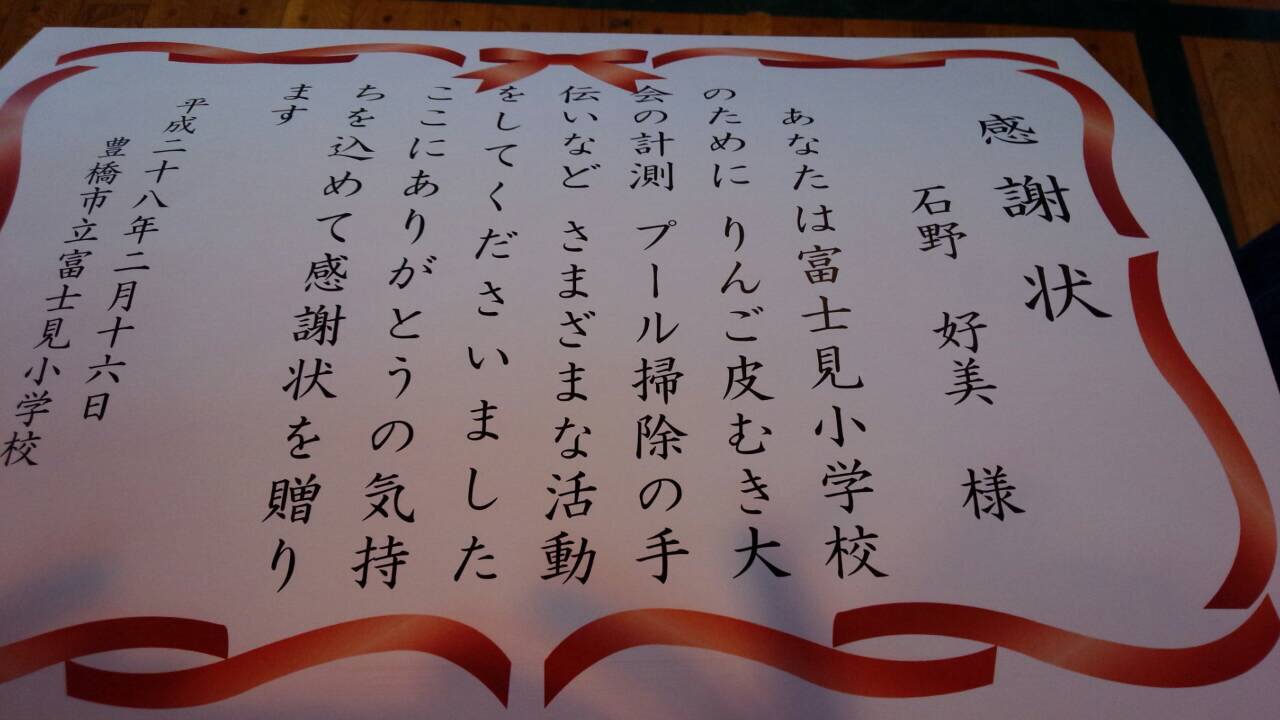 感謝状
石野 好美 様
あなたは富士見小学校
のために りんご皮むき大
会の計測 プール掃除の手
伝いなど さまざまな活動
をしてくださいました
ここにありがとうの気持
ちを込めて感謝状を贈り
ます
平成二十八年二月十六日
豊橋市立富士見小学校